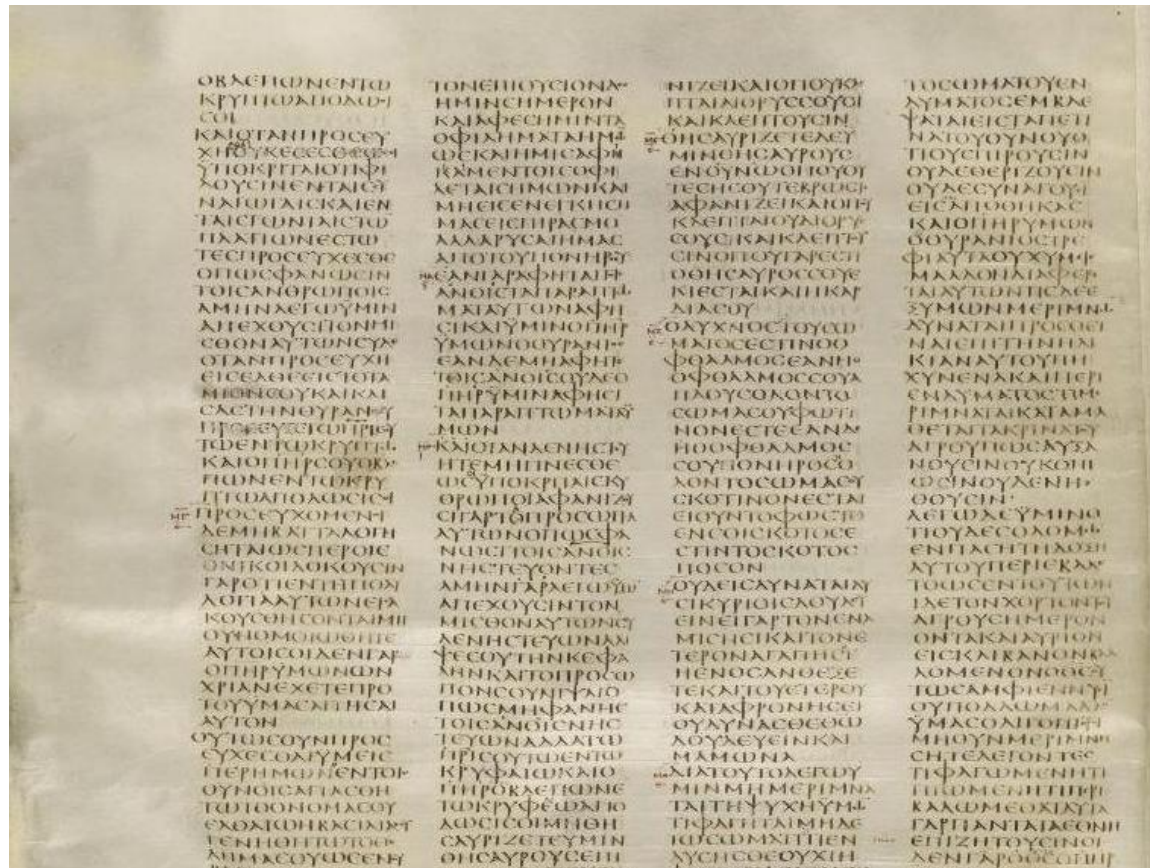 ΟΒΛΕΠΩΝΕΝΤΩ
ΚΡΥΠΤΩΑΠΟΔΩϹΙ
ϹΟΙ
ΚΑΙΟΤΑΝΠΡΟϹΕΥ
ΫΠΟΚΡΙΤΑΙΟΤΙΦΙ
ΛΟΥϹΙΝΕΝΤΑΙϹϹΥ
ΝΑΓΩΓΑΙϹΚΑΙΕΝ
ΤΑΙϹΓΩΝΙΑΙϹΤΩ
ΠΛΑΤΙΩΝΕϹΤΩ
ΤΕϹΠΡΟϹΕΥΧΕϹΘΕ
ΟΠΩϹΦΑΝΩϹΙΝ
ΤΟΙϹΑΝΘΡΩΠΟΙϹ
ΑΜΗΝΛΕΓΩΫΜΙΝ
ΑΠΕΧΟΥϹΙΤΟΝΜΙ
ϹΘΟΝΑΥΤΩΝϹΥΔΕ
ΟΤΑΝΠΡΟϹΕΥΧΗ
ΕΙϹΕΛΘΕΕΙϹΤΟΤΑ
ΜΙΟΝϹΟΥΚΑΙΚΛΙ
ϹΑϹΤΗΝΘΥΡΑΝϹΟΥ
ΤΩΕΝΤΩΚΡΥΠΤΩ
ΚΑΙΟΠΗΡϹΟΥΟΒΛΕ
ΠΩΝΕΝΤΩΚΡΥ
ΠΤΩΑΠΟΔΩϹΙϹΟΙ
ΜΓ
ΠΡΟϹΕΥΧΟΜΕΝΟΙ
ΔΕΜΗΒΑΤΤΑΛΟΓΗ
ϹΗΤΑΙΩϹΠΕΡΟΙΕ
ΘΝΙΚΟΙΔΟΚΟΥϹΙΝ
ΓΑΡΟΤΙΕΝΤΗΠΟΛΥ
ΛΟΓΙΑΑΥΤΩΝΕΙϹΑ
ΚΟΥϹΘΗϹΟΝΤΑΙΜΗ
ΟΥΝΟΜΟΙΩΘΗΤΕ
ΑΥΤΟΙϹΟΙΔΕΝΓΑΡ
ΟΠΗΡΫΜΩΝΩΝ
ΧΡΙΑΝΕΧΕΤΕΠΡΟ
ΤΟΥΫΜΑϹΑΙΤΗϹΑΙ
ΑΥΤΟΝ
ΟΥΤΩϹΟΥΝΠΡΟϹ
ΕΥΧΕϹΘΑΙΫΜΕΙϹ
ΠΕΡΗΜΩΝΕΝΤΟΙϹ
ΟΥΝΟΙϹΑΓΙΑϹΘΗ
ΤΩΤΟΟΝΟΜΑϹΟΥ
ΕΛΘΑΤΩΗΒΑϹΙΛΙΑϹΟΥ
ΓΕΝΗΘΗΤΩΤΟΘΕ
ΛΗΜΑϹΟΥΩϹΕΝΟΥ
ΤΟΝΕΠΙΟΥϹΙΟΝΔΟϹ
ΗΜΙΝϹΗΜΕΡΟΝ
ΚΑΙΑΦΕϹΗΜΙΝΤΑ
ΟΦΙΛΗΜΑΤΑΗΜΩ
ΩϹΚΑΙΗΜΙϹΑΦΗ
ΚΑΜΕΝΤΟΙϹΟΦΙ
ΛΕΤΑΙϹΗΜΩΝΚΑΙ
ΜΗΕΙϹΕΝΕΓΚΗϹΗ
ΜΑϹΕΙϹΠΙΡΑϹΜΟ
ΑΛΛΑΡΥϹΑΙΗΜΑϹ
ΑΠΟΤΟΥΠΟΝΗΡΟΥ
ΜΔ
ΕΑΝΓΑΡΑΦΗΤΑΙΤΟΙϹ
ΑΝΟΙϹΤΑΠΑΡΑΠΤΩ
ΜΑΤΑΑΥΤΩΝΑΦΗ
ϹΙΚΑΙΫΜΙΝΟΠΗΡ
ΫΜΩΝΟΟΥΡΑΝΙΟϹ
ΕΑΝΔΕΜΗΑΦΗΤΕ
ΤΟΙϹΑΝΟΙϹΟΥΔΕΟ
ΠΗΡΫΜΙΝΑΦΗϹΙ
ΤΑΠΑΡΑΠΤΩΜΑΤΑΫ
ΜΩΝ
ΚΑΙΟΤΑΝΔΕΝΗϹΤΕΥ
ΗΤΕΜΗΓΙΝΕϹΘΕ
ΩϹΥΠΟΚΡΙΤΑΙϹΚΥ
ΝΩϹΙΤΟΙϹΑΝΟΙϹ
ΝΗϹΤΕΥΟΝΤΕϹ
ΑΜΗΝΓΑΡΛΕΓΩΫΜΙ
ΑΠΕΧΟΥϹΙΝΤΟΝ
ΜΙϹΘΟΝΑΥΤΩΝϹΥ
ΔΕΝΗϹΤΕΥΩΝΑΛΙ
ΨΕϹΟΥΤΗΝΚΕΦΑ
ΛΗΝΚΑΙΤΟΠΡΟϹΩ
ΠΟΝϹΟΥΝΙΨΑΙΟ
ΠΩϹΜΗΦΑΝΗϹ
ΤΟΙϹΑΝΟΙϹΝΗϹ
ΤΕΥΩΝΑΛΛΑΤΩ
ΠΡΙϹΟΥΤΩΕΝΤΩ
ΚΡΥΦΑΙΩΚΑΙΟ
ΠΗΡΟΒΛΕΠΩΝΕ
ΤΩΚΡΥΦΕΩΑΠΟ
ΔΩϹΙϹΟΙΜΗΘΗ
ϹΑΥΡΙΖΕΤΕΫΜΙΝ
ΘΗϹΑΥΡΟΥϹΕΠΙ
ΝΙΖΕΙΚΑΙΟΠΟΥΚΛΕ
ΠΤΑΙΔΙΟΡΥϹϹΟΥϹΙ
ΚΑΙΚΛΕΠΤΟΥϹΙΝ
ΘΗϹΑΥΡΙΖΕΤΕΔΕΫ
ΜΙΝΘΗϹΑΥΡΟΥϹ
ΕΝΟΥΝΩΟΠΟΥΟΥ
ΤΕϹΗϹΟΥΤΕΒΡΩϹΙϹ
ΑΦΑΝΙΖΕΙΚΑΙΟΠΟΥ
ΚΛΕΠΤΑΙΟΥΔΙΟΡΥϹ
ϹΟΥϹΙΚΑΙΚΛΕΠΤΟΥ
ϹΙΝΟΠΟΥΓΑΡΕϹΤΙ
ΟΘΗϹΑΥΡΟϹϹΟΥΕ
ΚΙΕϹΤΑΙΚΑΙΗΚΑΡ
ΔΙΑϹΟΥ
ΟΛΥΧΝΟϹΤΟΥϹΩ
ΜΑΤΟϹΕϹΤΙΝΟΟ
ΦΘΑΛΜΟϹΕΑΝΗΟ
ΟΦΘΑΛΜΟϹϹΟΥΑ
ΠΛΟΥϹΟΛΟΝΤΟ
ϹΩΜΑϹΟΥΦΩΤΙ
ΝΟΝΕϹΤΕΕΑΝΔΕ
ΗΟΟΦΘΑΛΜΟϹ
ϹΟΥΠΟΝΗΡΟϹΟ
ΛΟΝΤΟϹΩΜΑϹΟΥ
ϹΚΟΤΙΝΟΝΕϹΤΑΙ
ΕΙΟΥΝΤΟΦΩϹΤΟ
ΕΝϹΟΙϹΚΟΤΟϹΕ
ϹΤΙΝΤΟϹΚΟΤΟϹ
ΠΟϹΟΝ
ΟΥΔΕΙϹΔΥΝΑΤΑΙΔΥ
ϹΙΚΥΡΙΟΙϹΔΟΥΛΕΥ
ΕΙΝΕΙΓΑΡΤΟΝΕΝΑ
ΜΙϹΗϹΙΚΑΙΤΟΝΕ
ΤΕΡΟΝΑΓΑΠΗϹΕΙ
ΗΕΝΟϹΑΝΘΕΞΕ
ΤΕΚΑΙΤΟΥΕΤΕΡΟΥ
ΚΑΤΑΦΡΟΝΗϹΕΙ
ΟΥΔΥΝΑϹΘΕΘΩ
ΔΟΥΛΕΥΕΙΝΚΑΙ
ΜΑΜΩΝΑ
ΔΙΑΤΟΥΤΟΛΕΓΩΫ
ΜΙΝΜΗΜΕΡΙΜΝΑ
ΤΑΙΤΗΨΥΧΗΫΜΩ
ΤΙΦΑΓΗΤΑΙΜΗΔΕ
ΤΩϹΩΜΑΤΙΤΙΕΝ
ΔΥϹΗϹΘΕΟΥΧΙΗ
ΤΟϹΩΜΑΤΟΥΕΝ
ΔΥΜΑΤΟϹΕΜΒΛΕ
ΨΑΤΑΙΕΙϹΤΑΠΕΤΙ
ΝΑΤΟΥΟΥΝΟΥΟ
ΤΙΟΥϹΠΙΡΟΥϹΙΝ
ΟΥΔΕΘΕΡΙΖΟΥϹΙΝ
ΟΥΔΕϹΥΝΑΓΟΥϹΙ
ΕΙϹΑΠΟΘΗΚΑϹ
ΚΑΙΟΠΗΡΥΜΩΝ
ΟΟΥΡΑΝΙΟϹΤΡΕ
ΦΙΑΥΤΑΟΥΧΥΜΙϹ
ΜΑΛΛΟΝΔΙΑΦΕΡΕ
ΤΑΙΑΥΤΩΝΤΙϹΔΕΕ
ΞΥΜΩΝΜΕΡΙΜΝΩ
ΔΥΝΑΤΑΙΠΡΟϹΘΕΙ
ΝΑΙΕΠΙΤΗΝΗΛΙ
ΚΙΑΝΑΥΤΟΥΠΗ
ΧΥΝΕΝΑΚΑΙΠΕΡΙ
ΕΝΔΥΜΑΤΟϹΤΙΜΕ
ΡΙΜΝΑΤΑΙΚΑΤΑΜΑ
ΘΕΤΑΙΤΑΚΡΙΝΑΤΟΥ
ΑΓΡΟΥΠΩϹΑΥΞΑ
ΝΟΥϹΙΝΟΥΚΟΠΙ
ΩϹΙΝΟΥΔΕΝΗ
ΘΟΥϹΙΝ
ΛΕΓΩΔΕΫΜΙΝΟ
ΤΙΟΥΔΕϹΟΛΟΜΩ
ΕΝΠΑϹΗΤΗΔΟΞΗ
ΑΥΤΟΥΠΕΡΙΕΒΑΛΕ
ΤΟΩϹΕΝΤΟΥΤΩΝ
ΙΔΕΤΟΝΧΟΡΤΟΝΤΟΥ
ΑΓΡΟΥϹΗΜΕΡΟΝ
ΟΝΤΑΚΑΙΑΥΡΙΟΝ
ΕΙϹΚΛΙΒΑΝΟΝΒΑΛ
ΛΟΜΕΝΟΝΟΘϹΟΥ
ΤΩϹΑΜΦΙΕΝΝΥϹΙ
ΟΥΠΟΛΛΩΜΑΛΛΟ
ΫΜΑϹΟΛΙΓΟΠΙϹΤΟΙ
ΜΗΟΥΝΜΕΡΙΜΝΗ
ϹΗΤΕΛΕΓΟΝΤΕϹ
ΤΙΦΑΓΩΜΕΝΗΤΙ
ΠΙΩΜΕΝΗΤΙΠΕΡΙ
ΒΑΛΩΜΕΘΑΤΑΥΤΑ
ΓΑΡΠΑΝΤΑΤΑΕΘΝΗ
ΕΠΙΖΗΤΟΥϹΙΝΟΙ